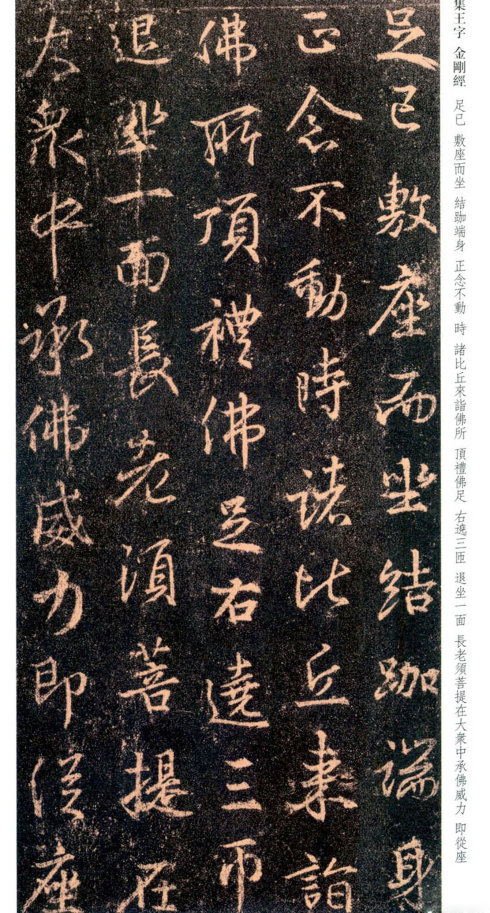 集王字 金剛經 足已 敷座而坐 結跏端身 正念不動 時 諸比丘來詣佛所 頂禮佛足 右遶三匝 退坐一面 長老須菩提在大衆中承佛威力 即從座
足已敷座而坐結跏端身
正念不動時諸比丘来詣
佛所頂禮佛足右遶三帀
退坐一面長老須菩提在
大衆中承佛威力即從座